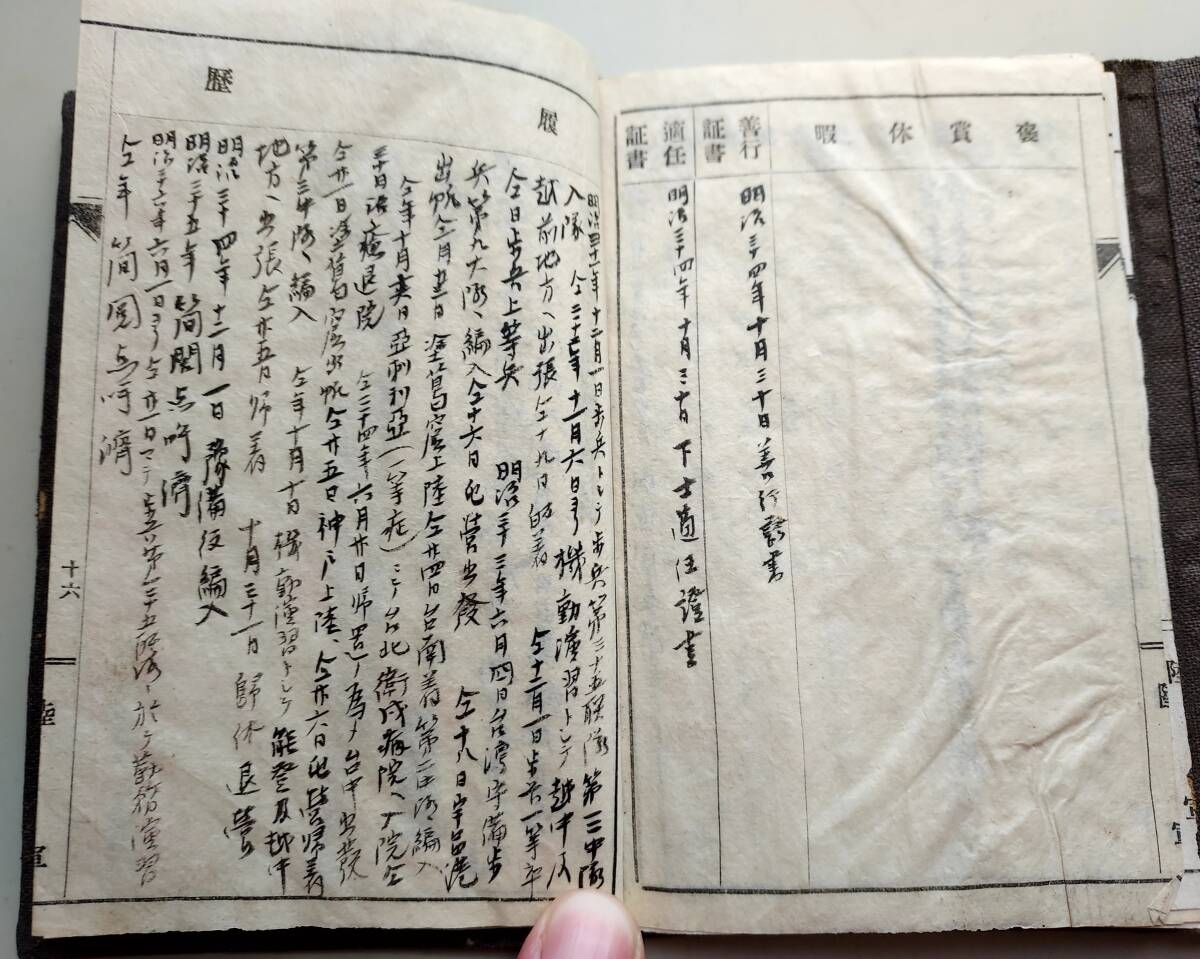 褒賞休暇
善行証書
明治三十四年十月三十日善行証書
適任証書
明治三十四年十月三十日下士適任證書
履歴
十二月一日歩兵トシテ歩兵第三十五聯隊第三中隊
入隊 仝三十二年十一月六日ヨリ機動演習トシテ越中及
越前地方ヘ出張仝十九日帰着 仝十二月一日歩兵一等卒
仝日歩兵上等兵 明治三十三年六月四日台湾守備歩
兵第九大隊ヘ編入仝十六日屯営出發 仝十八日宇品港
出帆仝月廿一日塗葛窟上陸仝廿四日台南着第二中隊編入
仝年十月 日亞利亞(一等症)ニテ台北衛戍病院ヘ入院仝
三十日治癒退院 仝三十四年六月廿日帰還ノ為メ台中出發
仝廿一日塗葛窟出帆仝廿五日神戸上陸、仝廿六日屯営帰着
第三中隊ヘ編入 仝年十月十日機動演習トシテ能登及越中
地方ヘ出張仝廿五日帰着 十月三十一日歸休退營
明治三十四年十二月一日豫備役編入
明治三十五年簡閲点呼濟
明治三十六年六月一日ヨリ仝廿一日マテ歩兵第三十五聯隊ニ於テ勤務演習
仝年簡閲点呼濟
十六
陸
軍